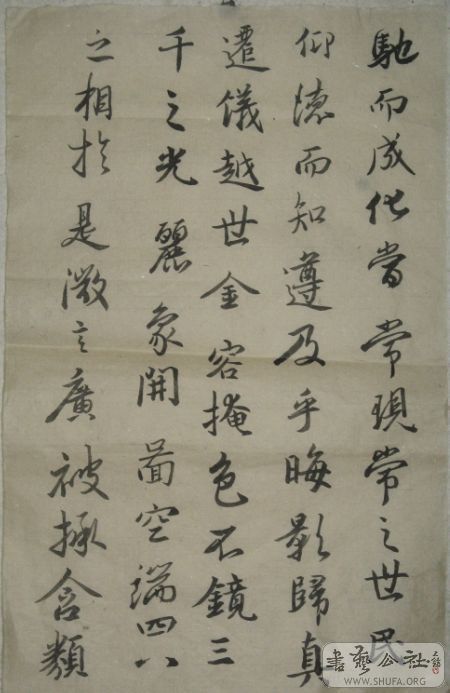 馳而成化當常現常之世民
仰德而知遵及乎晦影歸真
遷儀越世金容掩色不鏡三
千之光麗象開啚空端四八
之相於是微言廣被拯含類
書藝公社
WWW.SHUFA.ORG